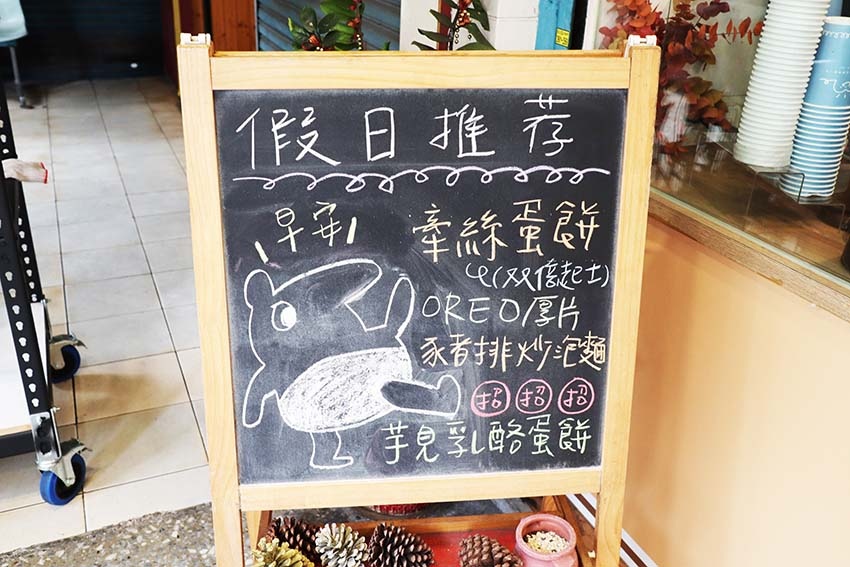 假日推荐
早安
牽絲蛋餅
(双倍起士)
OREO厚片
豖者排炒泡麵
招 招 招
芋見乳酪蛋餅